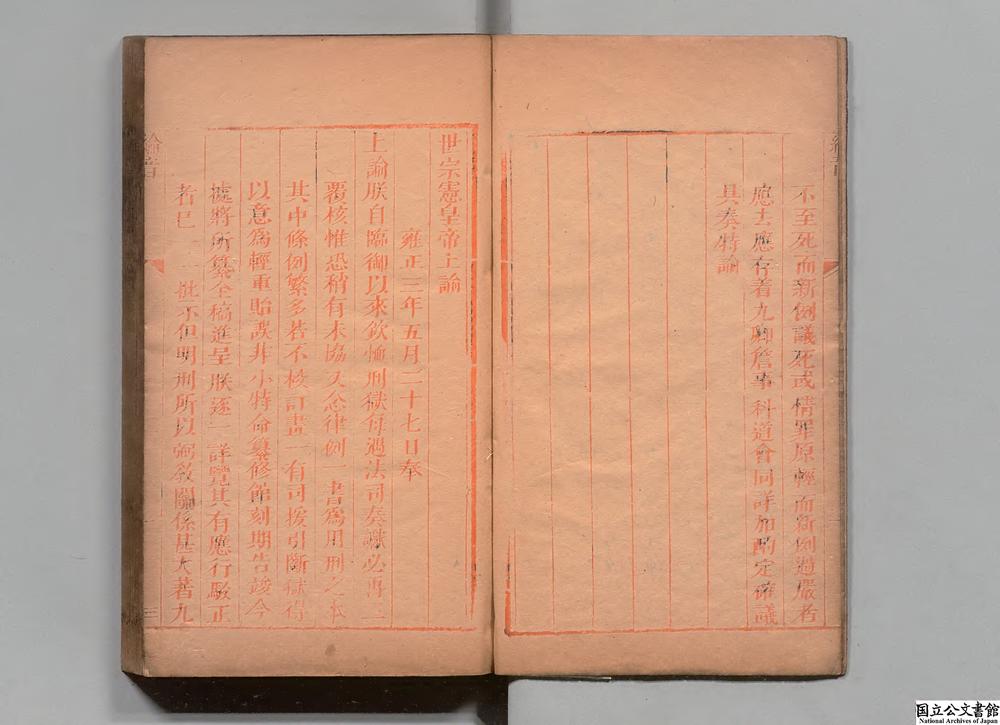 不至死而新例議死或情罪原輕而新例過嚴者
應去應存着九卿詹事科道會同詳加酌定確議
具奏特諭
世宗憲皇帝上諭
雍正三年五月二十七日奉
上諭朕自臨御以來欽恤刑獄每遇法司奏讞必再三
覆核惟恐稍有未協又念律例一書爲用刑之本
其中條例繁多若不校訂畫一有司援引斷獄得
以意爲輕重貽誤非小特命纂修館刻期告竣今
據將所纂全稿進呈朕逐一詳覽其有應行駁正
者已一一批示但明刑所以弼教關係甚大著九
綸音
三
国立公文書館
National Archives of Japan